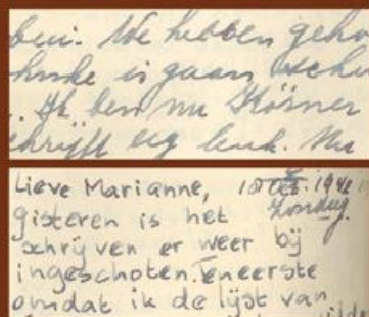 ben. We hebben geho
is gaan
. Ik ben nu Körner
schrijft erg leuk. Nu
Lieve Marianne, 10 Oct. 1942
gisteren is het Zondag.
schrijven er weer bij
ingeschoten. Teneerste
omdat ik de lijst van